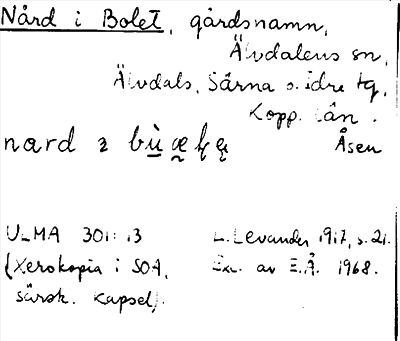 Nård i Bolet, gårdsnamn,
Älvdalens sn,
Älvdals, Särna o. Idre tg,
Kopp. län.
nard
Åsen
ULMA 301:13
L. Levander 1917, s. 21.
(Xerokopia i SOA,
Exc. av E.Å. 1968.
särsk. kapsel).